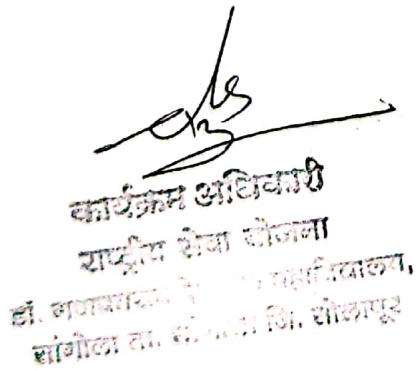 कार्यक्रम अधिकारी
राष्ट्रीय सेवा योजना
डॉ. गणपतराव महाविद्यालय,
सांगोला ता. सांगोला जि. सोलापूर